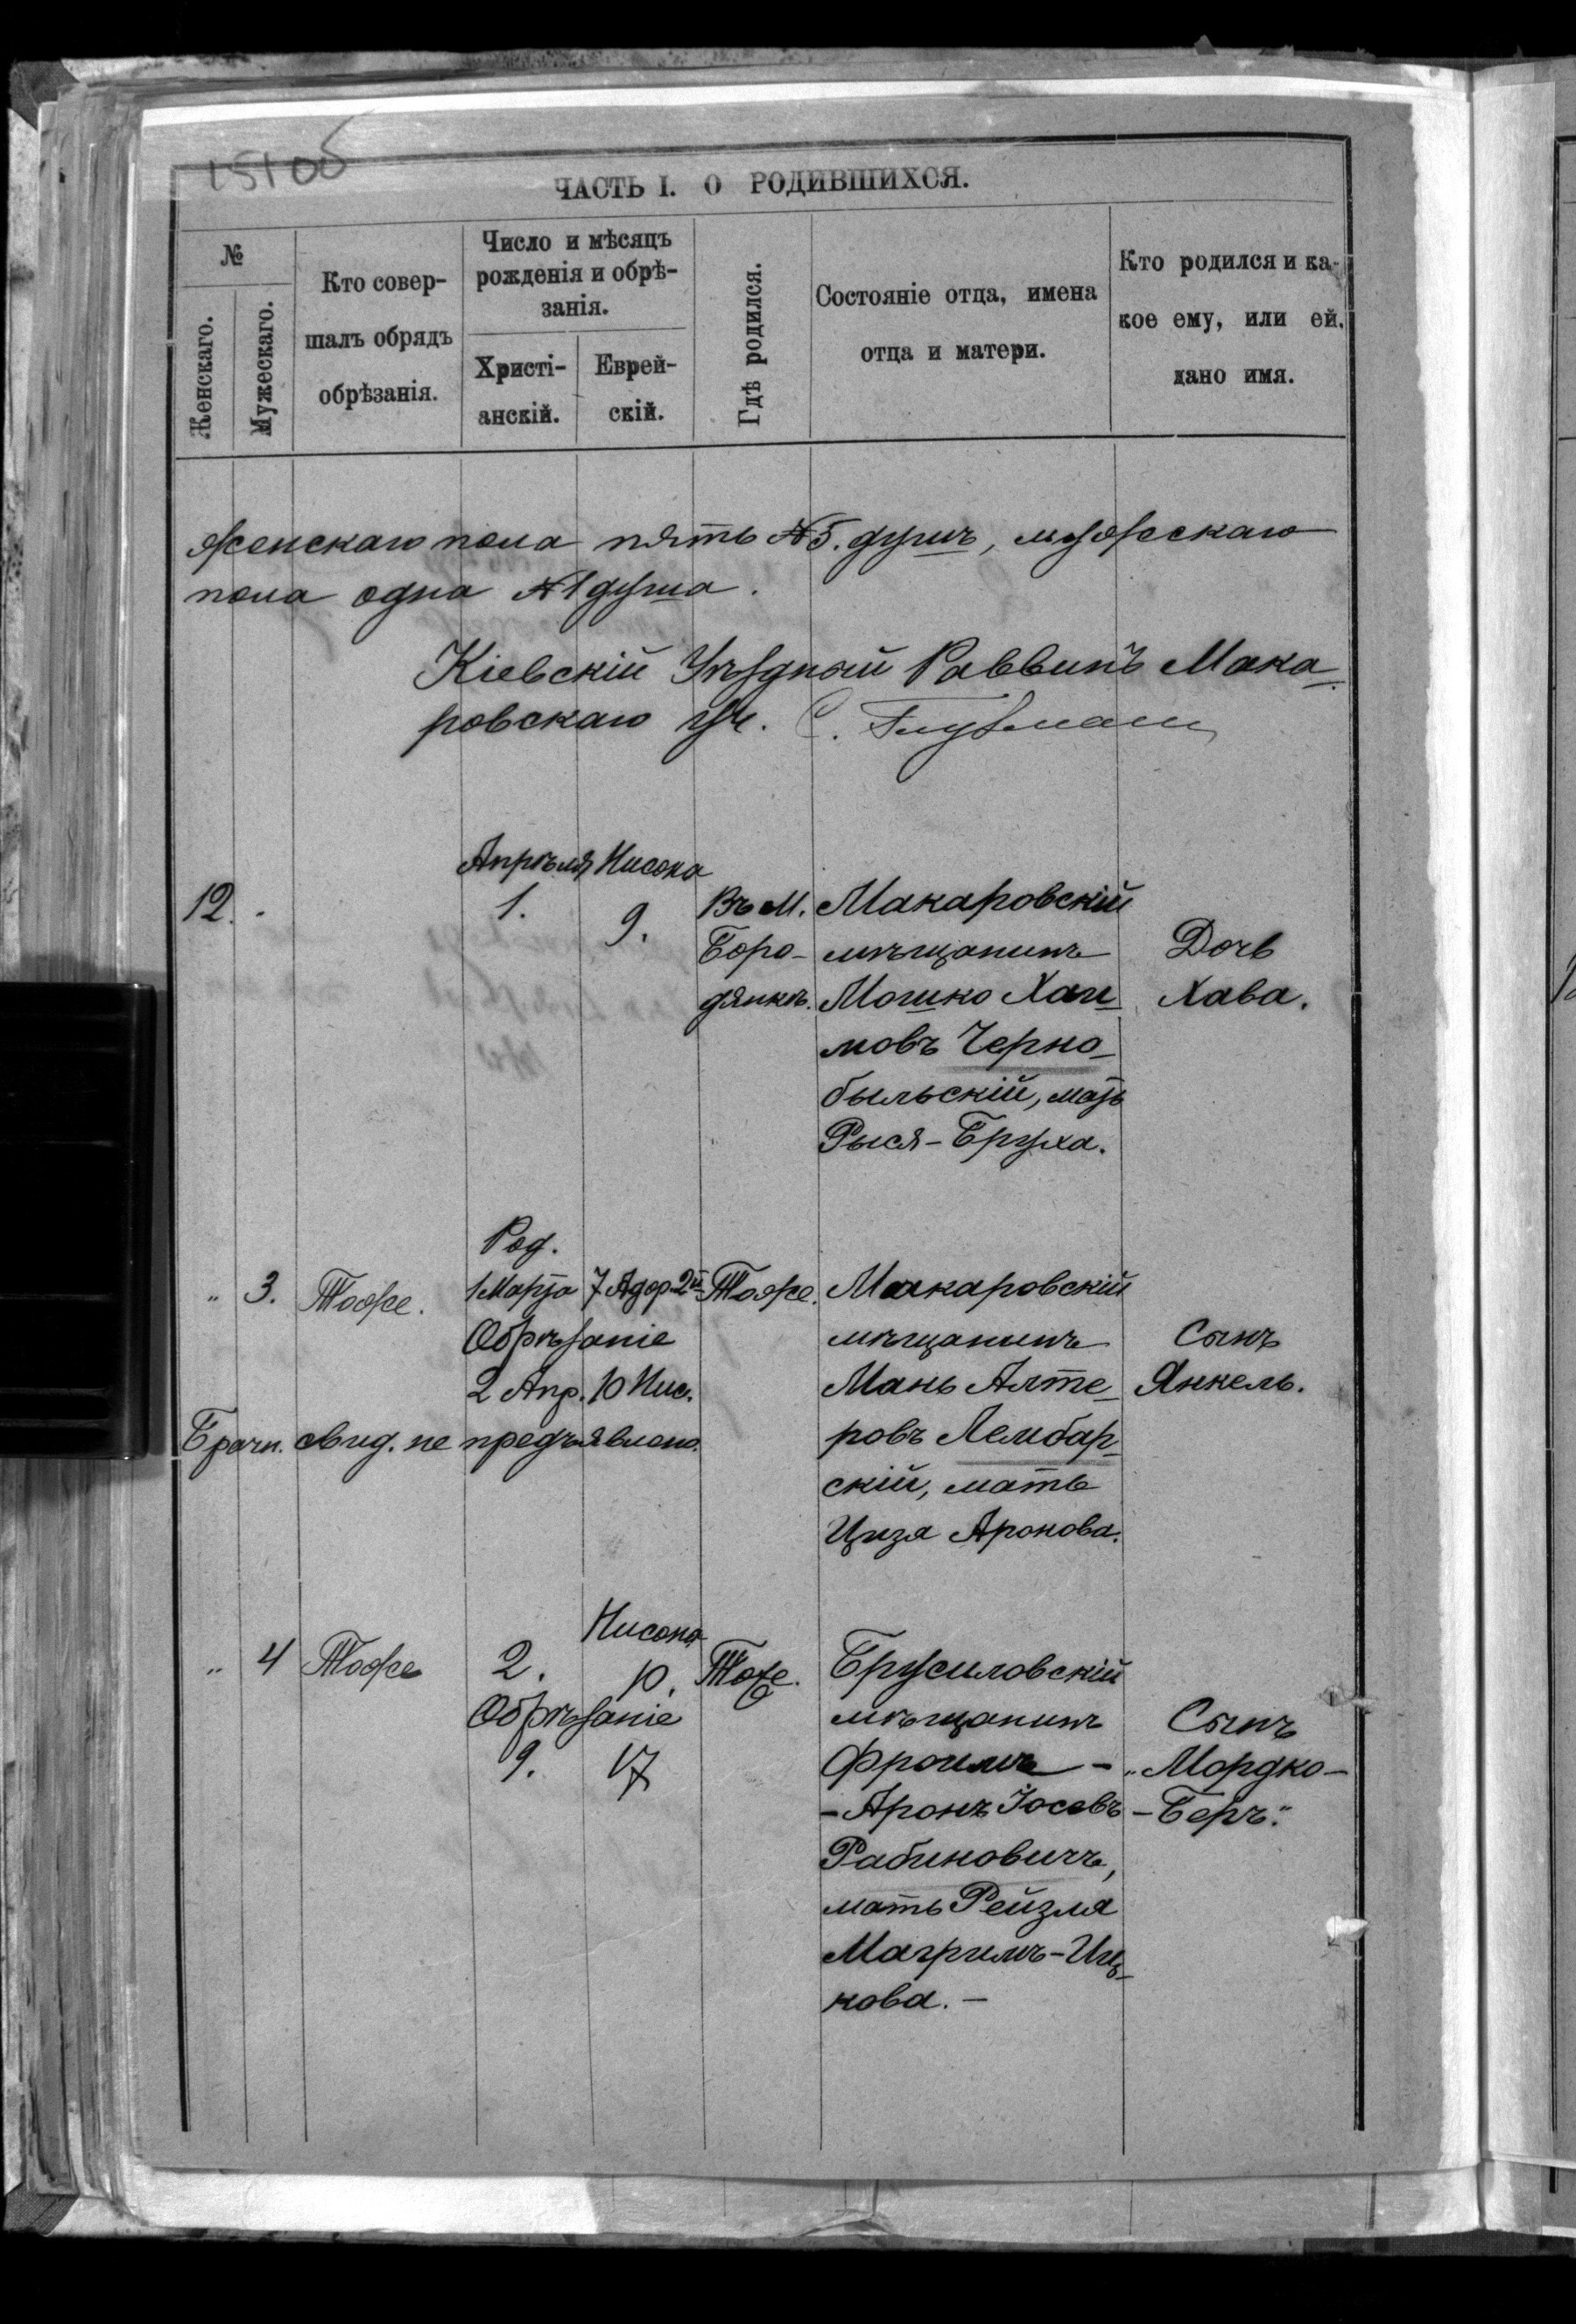 151об
ЧАСТЬ I. О РОДИВШИХСЯ.
№
Женскаго.
Мужескаго.
Кто совер-
шалъ обрядъ
обрѣзанія.
Число и мѣсяцъ
рожденія и обрѣ-
занія.
Христі-
анскій.
Еврей-
скій.
Гдѣ родился.
Состояніе отца, имена
отца и матери.
Кто родился и ка-
кое ему, или ей,
дано имя.
женскаго пола пять №5. душъ, мужескаго
пола одна №1 душа.
Кіевскій Уѣздный Раввинъ Мака-
ровскаго уч. С. Глузман
Апрѣля Нисона
12. - 1. 9.
Въ М.
Боро-
дянкѣ.
Макаровскій
мѣщанинъ
Мошко Хаи-
мовъ Черно-
быльскій, мать
Рыся-Бруха.
Дочь
Хава.
" 3. Тоже.
Род.
1 Марта 7 Адор. 2й
Обрѣзаніе
2 Апр. 10 Нис.
Тоже.
Брачн. свид. не предъявлено.
Макаровскій
мѣщанинъ
Мань Алте-
ровъ Лембар-
скій, мать
Цизя Аронова.
Сынъ
Янкель.
" 4 Тоже
Нисона
2. 10.
Обрѣзаніе
9. 17
Тоже.
Брусиловскій
мѣщанинъ
Фроимъ -
- Аронъ Іосевъ
Рабиновичъ,
мать Рейзля
Магримъ-Иц-
кова. -
Сынъ
„Мордко-
-Беръ."